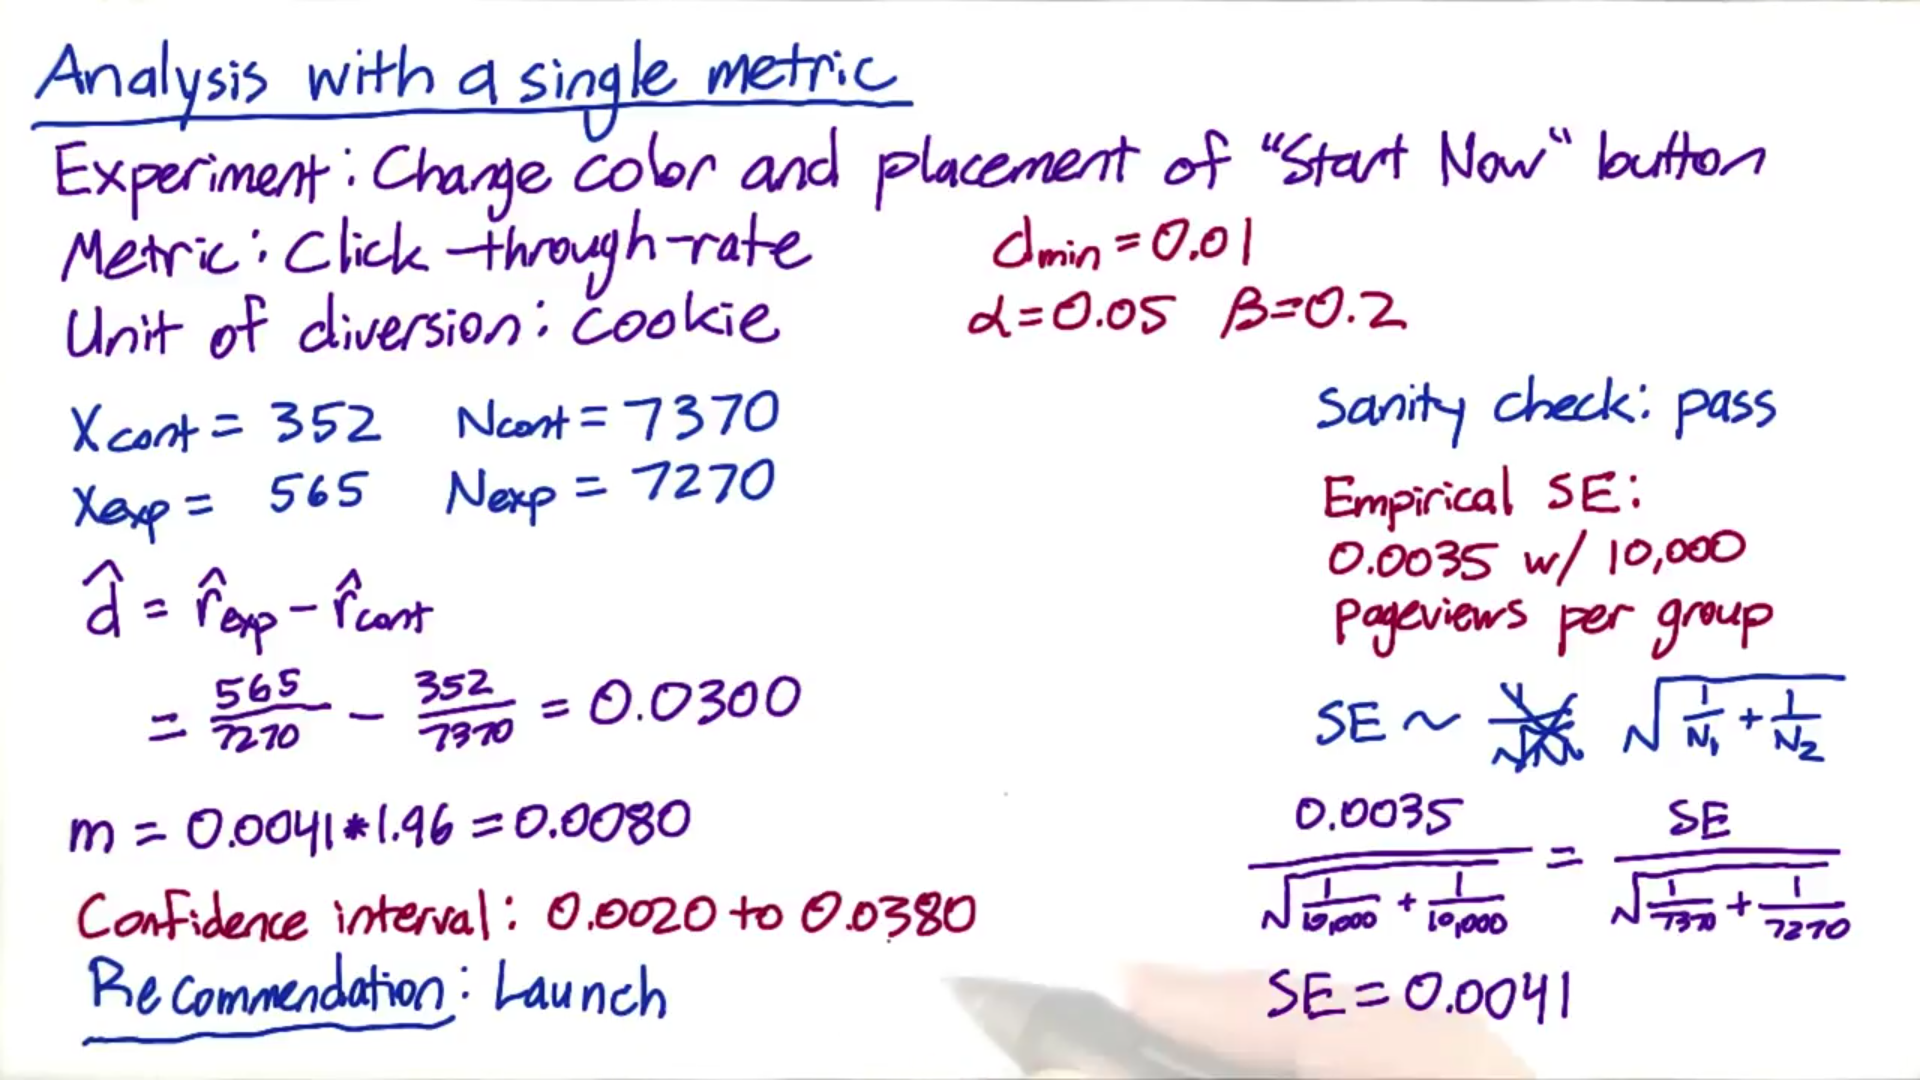 Analysis with a single metric
Experiment: Change color and placement of "Start Now" button
Metric: Click-through-rate
dmin = 0.01
Unit of diversion: cookie
α=0.05 β=0.2
Xcont = 352 Ncont = 7370
Xexp = 565 Nexp = 7270
d̂ = r̂exp - r̂cont
= 565/7270 - 352/7370 = 0.0300
m = 0.0041*1.96 = 0.0080
Confidence interval: 0.0020 to 0.0380
Recommendation: Launch
Sanity check: pass
Empirical SE:
0.0035 w/ 10,000
pageviews per group
SE ~ √(1/N1 + 1/N2)
0.0035/√(1/10,000 + 1/10,000) = SE/√(1/7370 + 1/7270)
SE = 0.0041